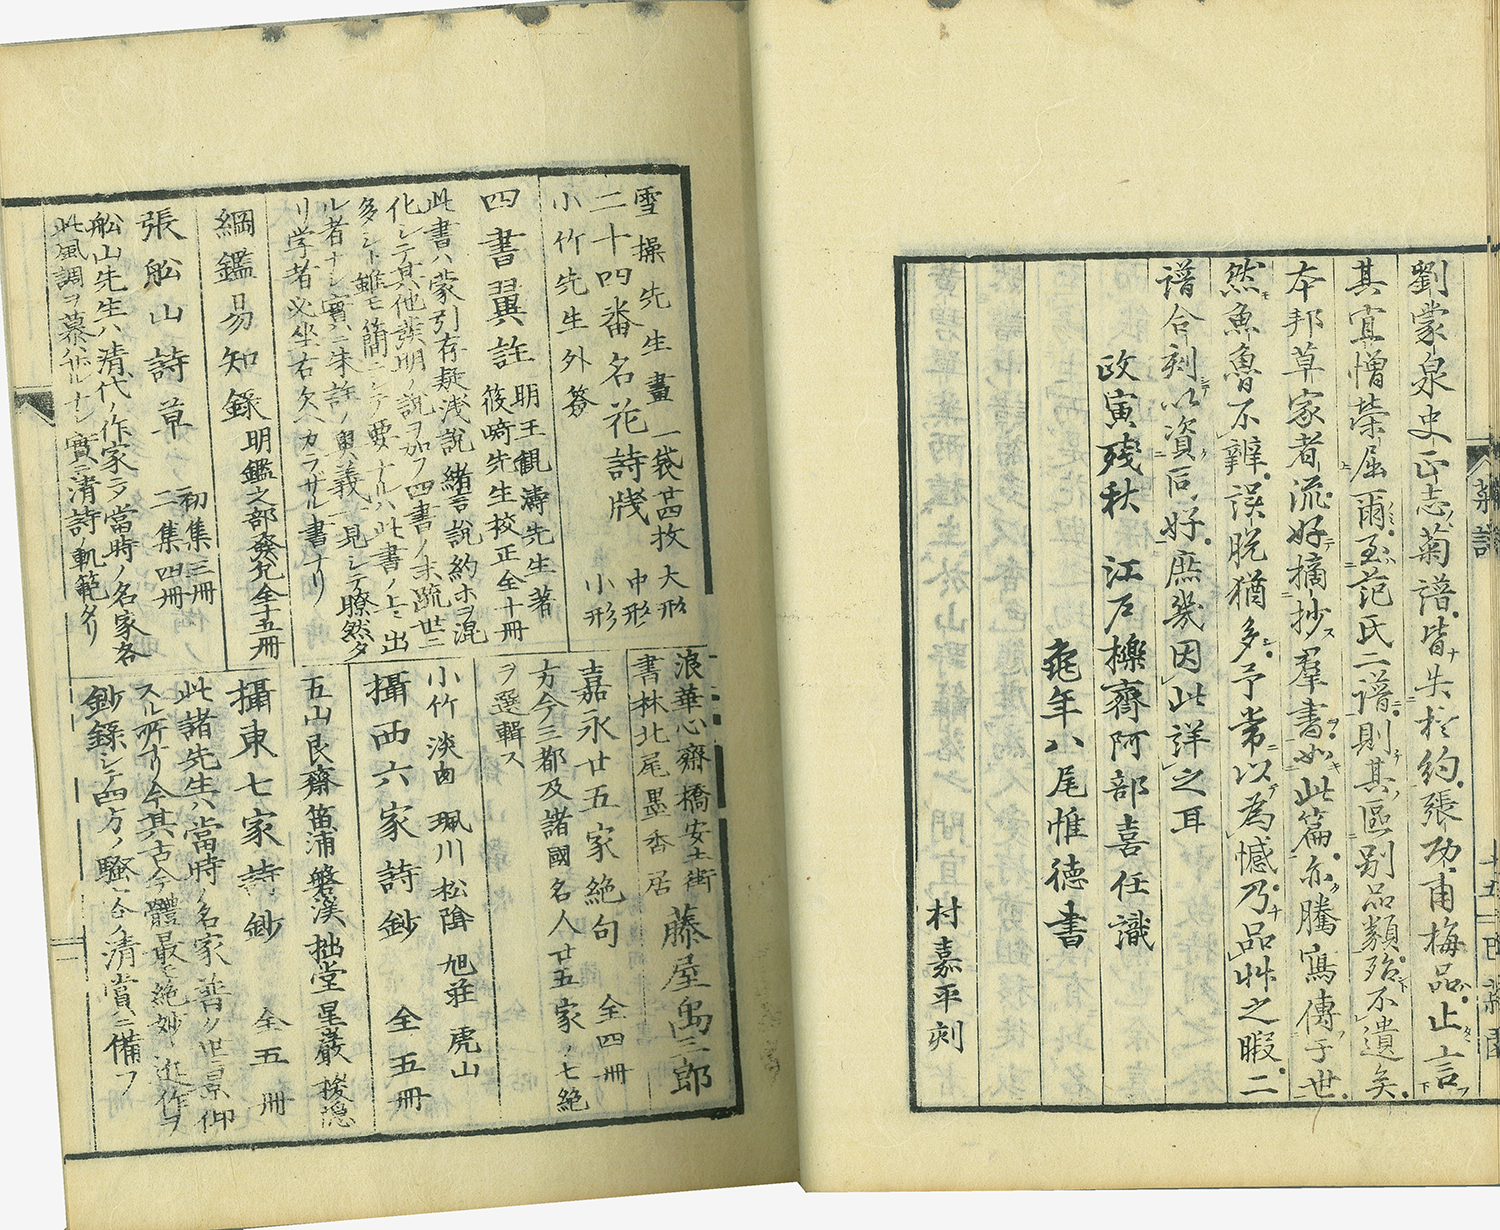 劉蒙泉史正志菊譜皆失於約張功甫梅品止言
其宜憎榮屈爾至范氏二譜則其區别品類殆不遺矣
本邦草家者流好摘抄羣書如此篇亦騰寫傳于世
然魚魯不辨誤脱猶多予常以為憾乃品艸之暇二
譜合刻以資同好庶幾因此詳之耳
政寅残秋　江戸櫟齋阿部喜任識
龜年八尾惟徳書
村嘉平刻
雪操先生畫　一袋廿四枚　大形
二十四番名花詩牋　中形
小竹先生外簽　小形
四書翼註　明王観濤先生著
筱崎先生校正　全十冊
此書ハ蒙引存疑浅説緒言説約ホヲ混
化シテ其他発明ノ説ヲ加フ四書ノ末疏世ニ
多シト雖モ簡ニシテ要ナルハ此書ノ上ニ出
ル者ナシ實ニ朱註ノ奥義一見シテ瞭然タ
リ学者必坐右欠ヘカラザル書ナリ
綱鑑易知録　明鑑之部発兌全十五冊
張船山詩草　初集三冊
二集四冊
船山先生ハ清代ノ作家ニテ當時ノ名家各
此風調ヲ慕ハザルナシ實ニ清詩軌範タリ
浪華心齋橋安土街
書林北尾墨香居　藤屋禹三郎
嘉永廿五家絶句　全四冊
方今三都及諸國名人廿五家ノ七絶
ヲ選輯ス
小竹　淡囱　珮川　松陰　旭荘　虎山
攝西六家詩鈔　全五冊
五山　艮齋　笛浦　磐渓　拙堂　星巖　棕隠
攝東七家詩鈔　全五冊
此諸先生ハ當時ノ名家普ク世ニ景仰
スル所ナリ今其古今體最モ絶妙ノ近作ヲ
鈔録シテ四方ノ騒人ノ清賞ニ備フ